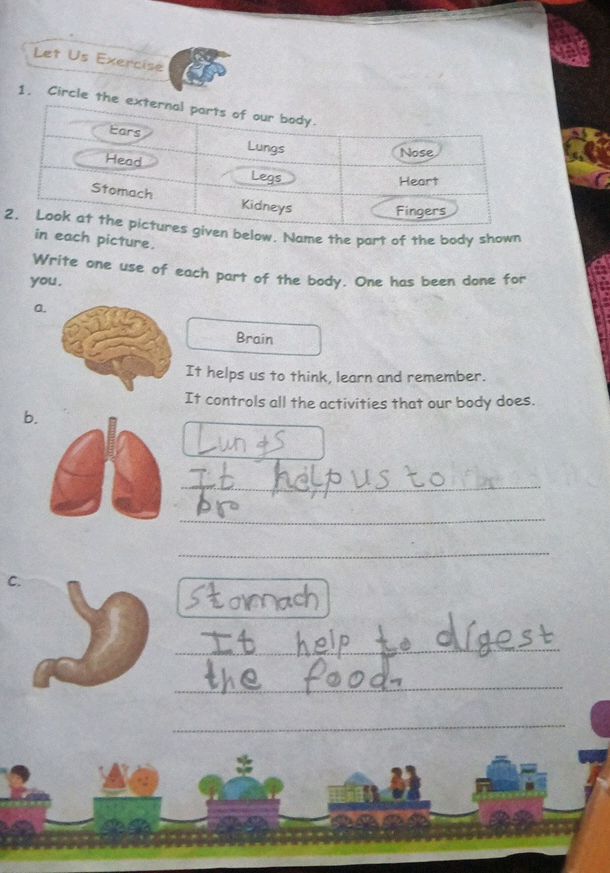 Let Us Exercise
1. Circle the external parts of our body.
Ears Lungs Nose
Head Legs Heart
Stomach Kidneys Fingers
2. Look at the pictures given below. Name the part of the body shown
in each picture.
Write one use of each part of the body. One has been done for
you.
a.
Brain
It helps us to think, learn and remember.
It controls all the activities that our body does.
b.
Lungs
It help us to
bro
c.
Stomach
It help to digest
the food